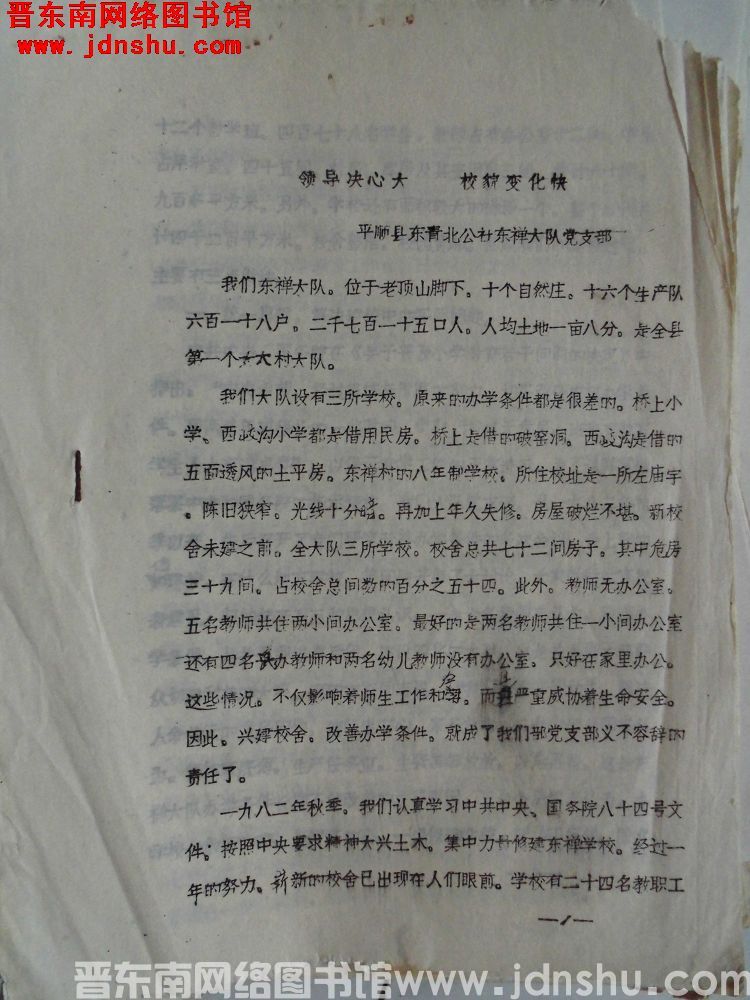 晋东南网络图书馆
www.jdnshu.com
领导决心大 校貌变化快
平顺县东青北公社东禅大队党支部
我们东禅大队。位于老顶山脚下。十个自然庄。十六个生产队
六百一十八户。二千七百一十五口人。人均土地一亩八分。是全县
第一个大村大队。
我们大队设有三所学校。原来的办学条件都是很差的。桥上小
学、西岐沟小学都是借用民房。桥上是借的破窑洞。西岐沟是借的
五面透风的土平房。东禅村的八年制学校。所住校址是一所左庙宇
。陈旧狭窄。光线十分暗。再加上年久失修。房屋破烂不堪。新校
舍未建之前。全大队三所学校。校舍总共七十二间房子。其中危房
三十九间。占校舍总间数的百分之五十四。此外。教师无办公室。
五名教师共住两小间办公室。最好的是两名教师共住一小间办公室
还有四名办教师和两名幼儿教师没有办公室。只好在家里办公。
这些情况。不仅影响着师生工作和。而且严重威协着生命安全。
因此。兴建校舍。改善办学条件。就成了我们部党支部义不容辞的
责任了。
一九八二年秋季。我们认真学习中共中央、国务院八十四号文
件；按照中央要求精神大兴土木。集中力量修建东禅学校。经过一
年的努力。新的校舍已出现在人们眼前。学校有二十四名教职工
—1—
晋东南网络图书馆www.jdnshu.com